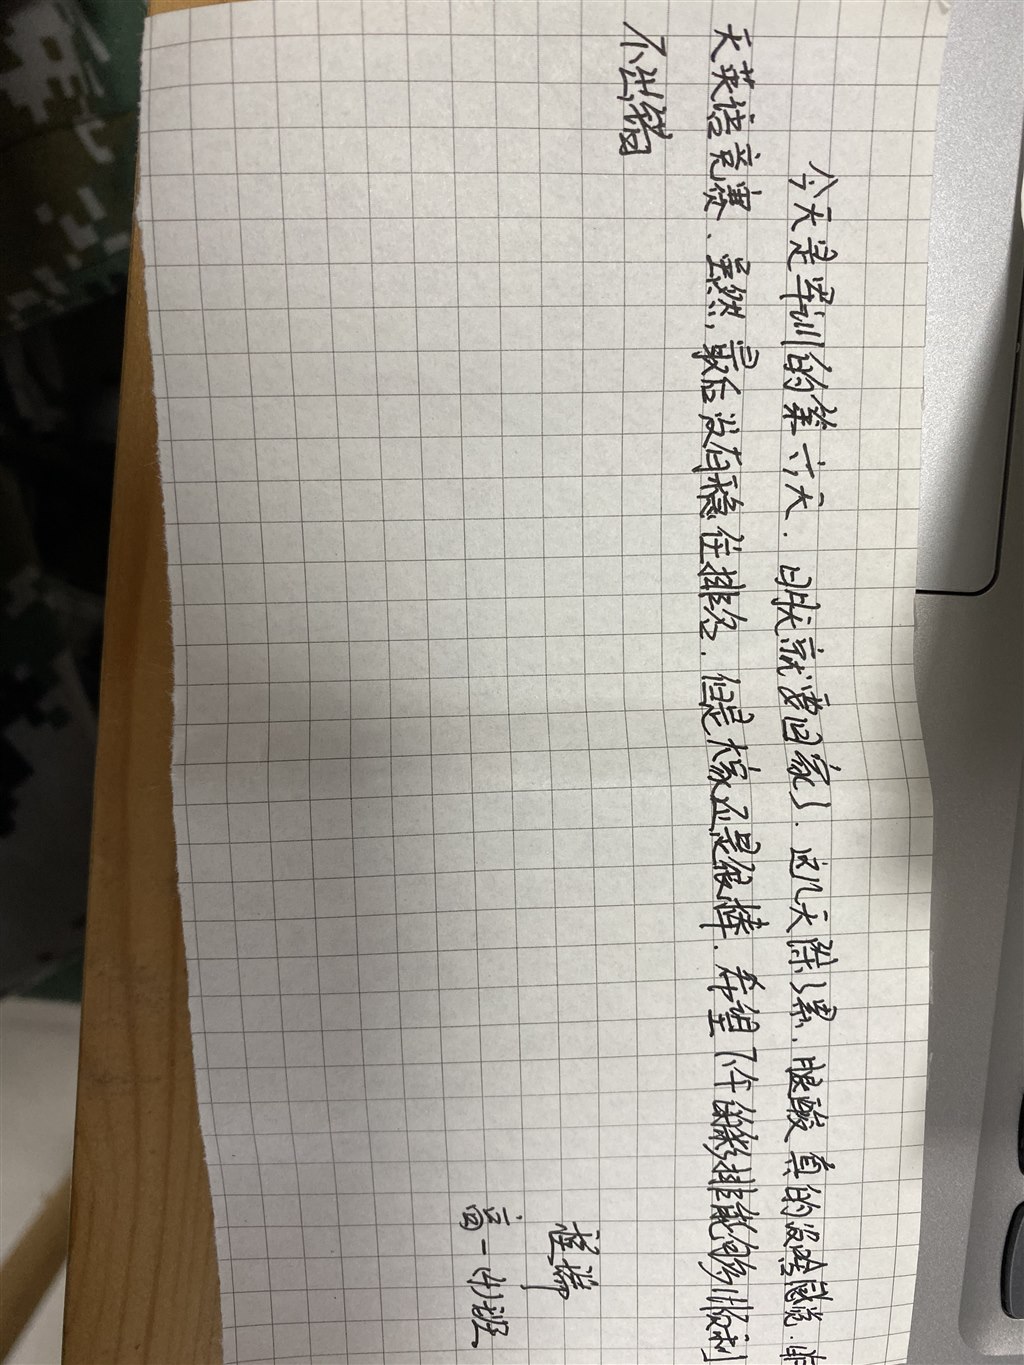 今天是军训的第六天.明天就要回家了.这几天除了累.腿酸真的没啥感觉.昨
天英语竞赛.虽然,最后没有稳住排名.但是大家还是很棒.希望下午的彩排能够顺利
不出错
高一(4)班